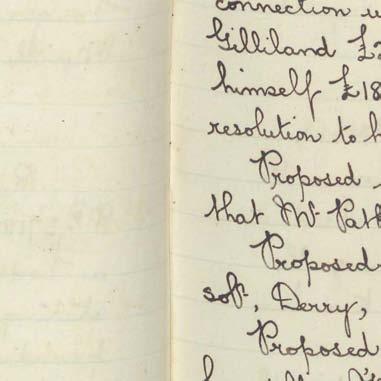 connection
Gilliland £
himself £18
resolution to
Proposed
that Mr. Pat
Proposed
solr., Derry,
Proposed